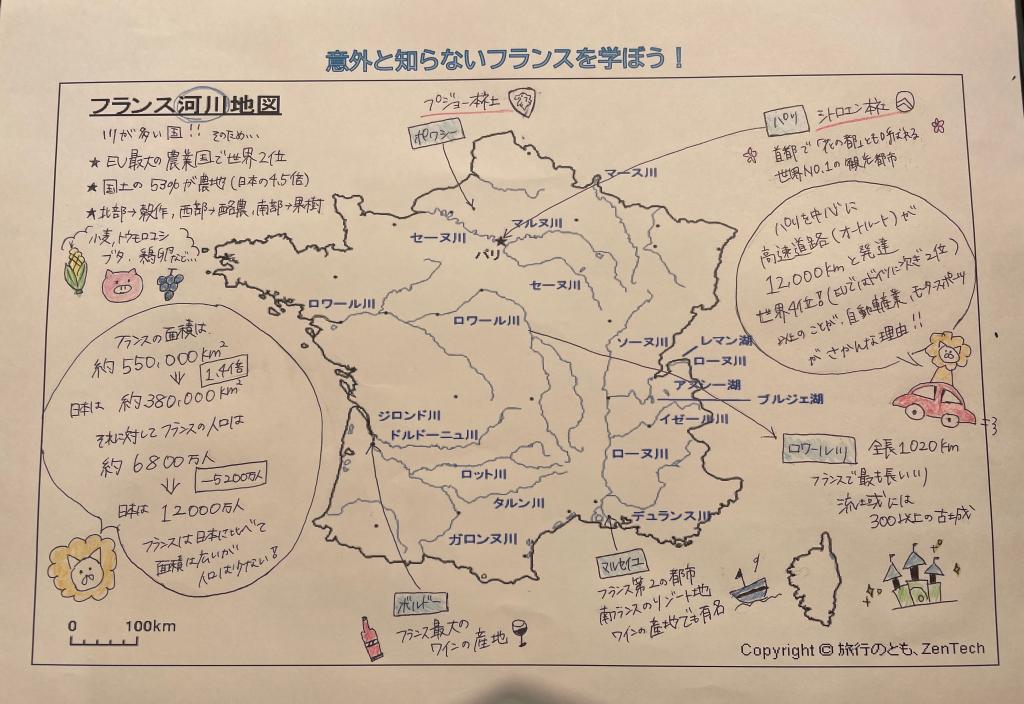 意外と知らないフランスを学ぼう！
フランス河川地図
川が多い国!! そのため…
★ EU最大の農業国で世界2位
★ 国土の53%が農地(日本の4.5倍)
★ 北部→穀作,西部→酪農,南部→果樹
小麦,トウモロコシ
ブタ、鶏卵など…
プジョー本社
ポワシー
パリ
シトロエン本社
首都で「花の都」とも呼ばれる
世界No.1の観光都市
パリを中心に
高速道路(オートルート)が
12,000kmと発達
世界4位!(EUではドイツに次ぎ2位)
以上のことが、自動車産業、モータースポーツ
がさかんな理由!!
フランスの面積は、
約550,000km²
1.4倍
日本は 約380,000km²
それに対してフランスの人口は
約6800万人
-5200万人
日本は 12000万人
フランスは日本に比べて
面積は広いが
人口は少ない!
マース川
マルヌ川
セーヌ川
パリ
セーヌ川
ロワール川
ロワール川
ソーヌ川
レマン湖
ローヌ川
アヌシー湖
ブルジェ湖
イゼール川
ジロンド川
ドルドーニュ川
ローヌ川
ロット川
タルン川
デュランス川
ガロンヌ川
ロワール川
全長1020km
フランスで最も長い川
流域には
300以上の古城
マルセイユ
フランス第2の都市
南フランスのリゾート地
ワインの産地でも有名
ボルドー
フランス最大の
ワインの産地
0 100km
Copyright © 旅行のとも、ZenTech